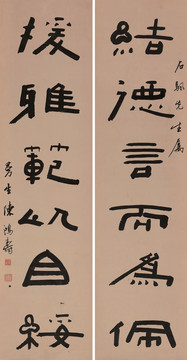 結德言而為佩
石 先生屬
援雅範以自綏
曼生陳鴻壽